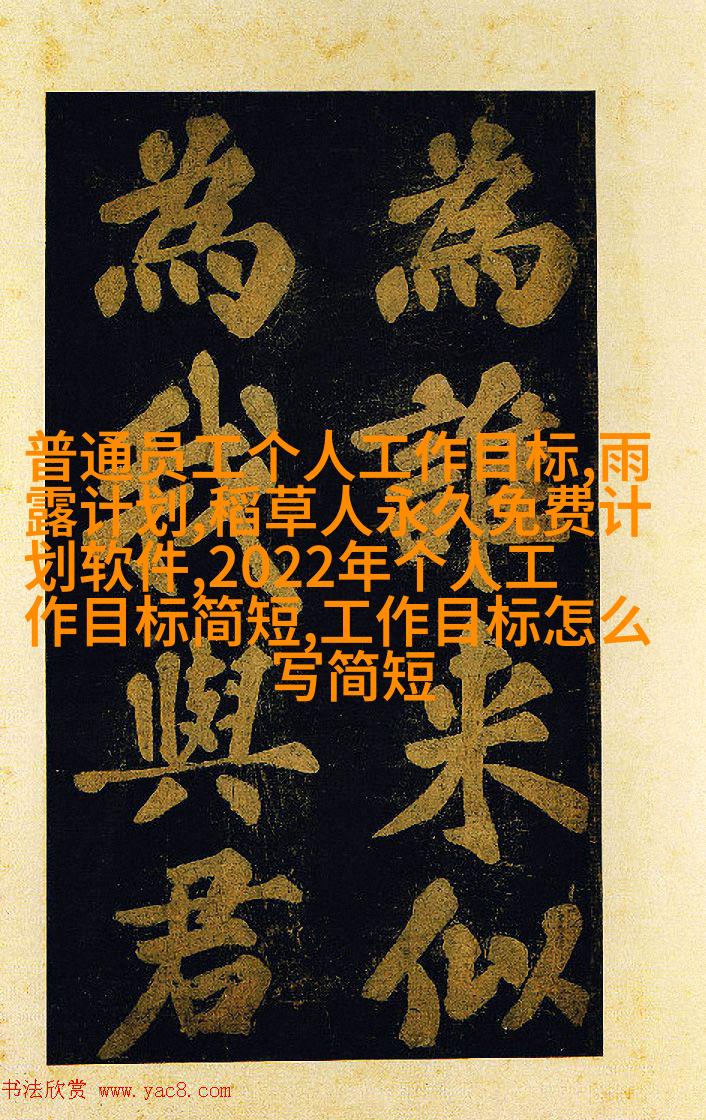 為誰米似
為我與君
普通员工个人工作目标,雨
露计划,稻草人永久免费计
划软件,2022年个人工
作目标简短,工作目标怎么
写简短
书法欣赏 www.yac8.com